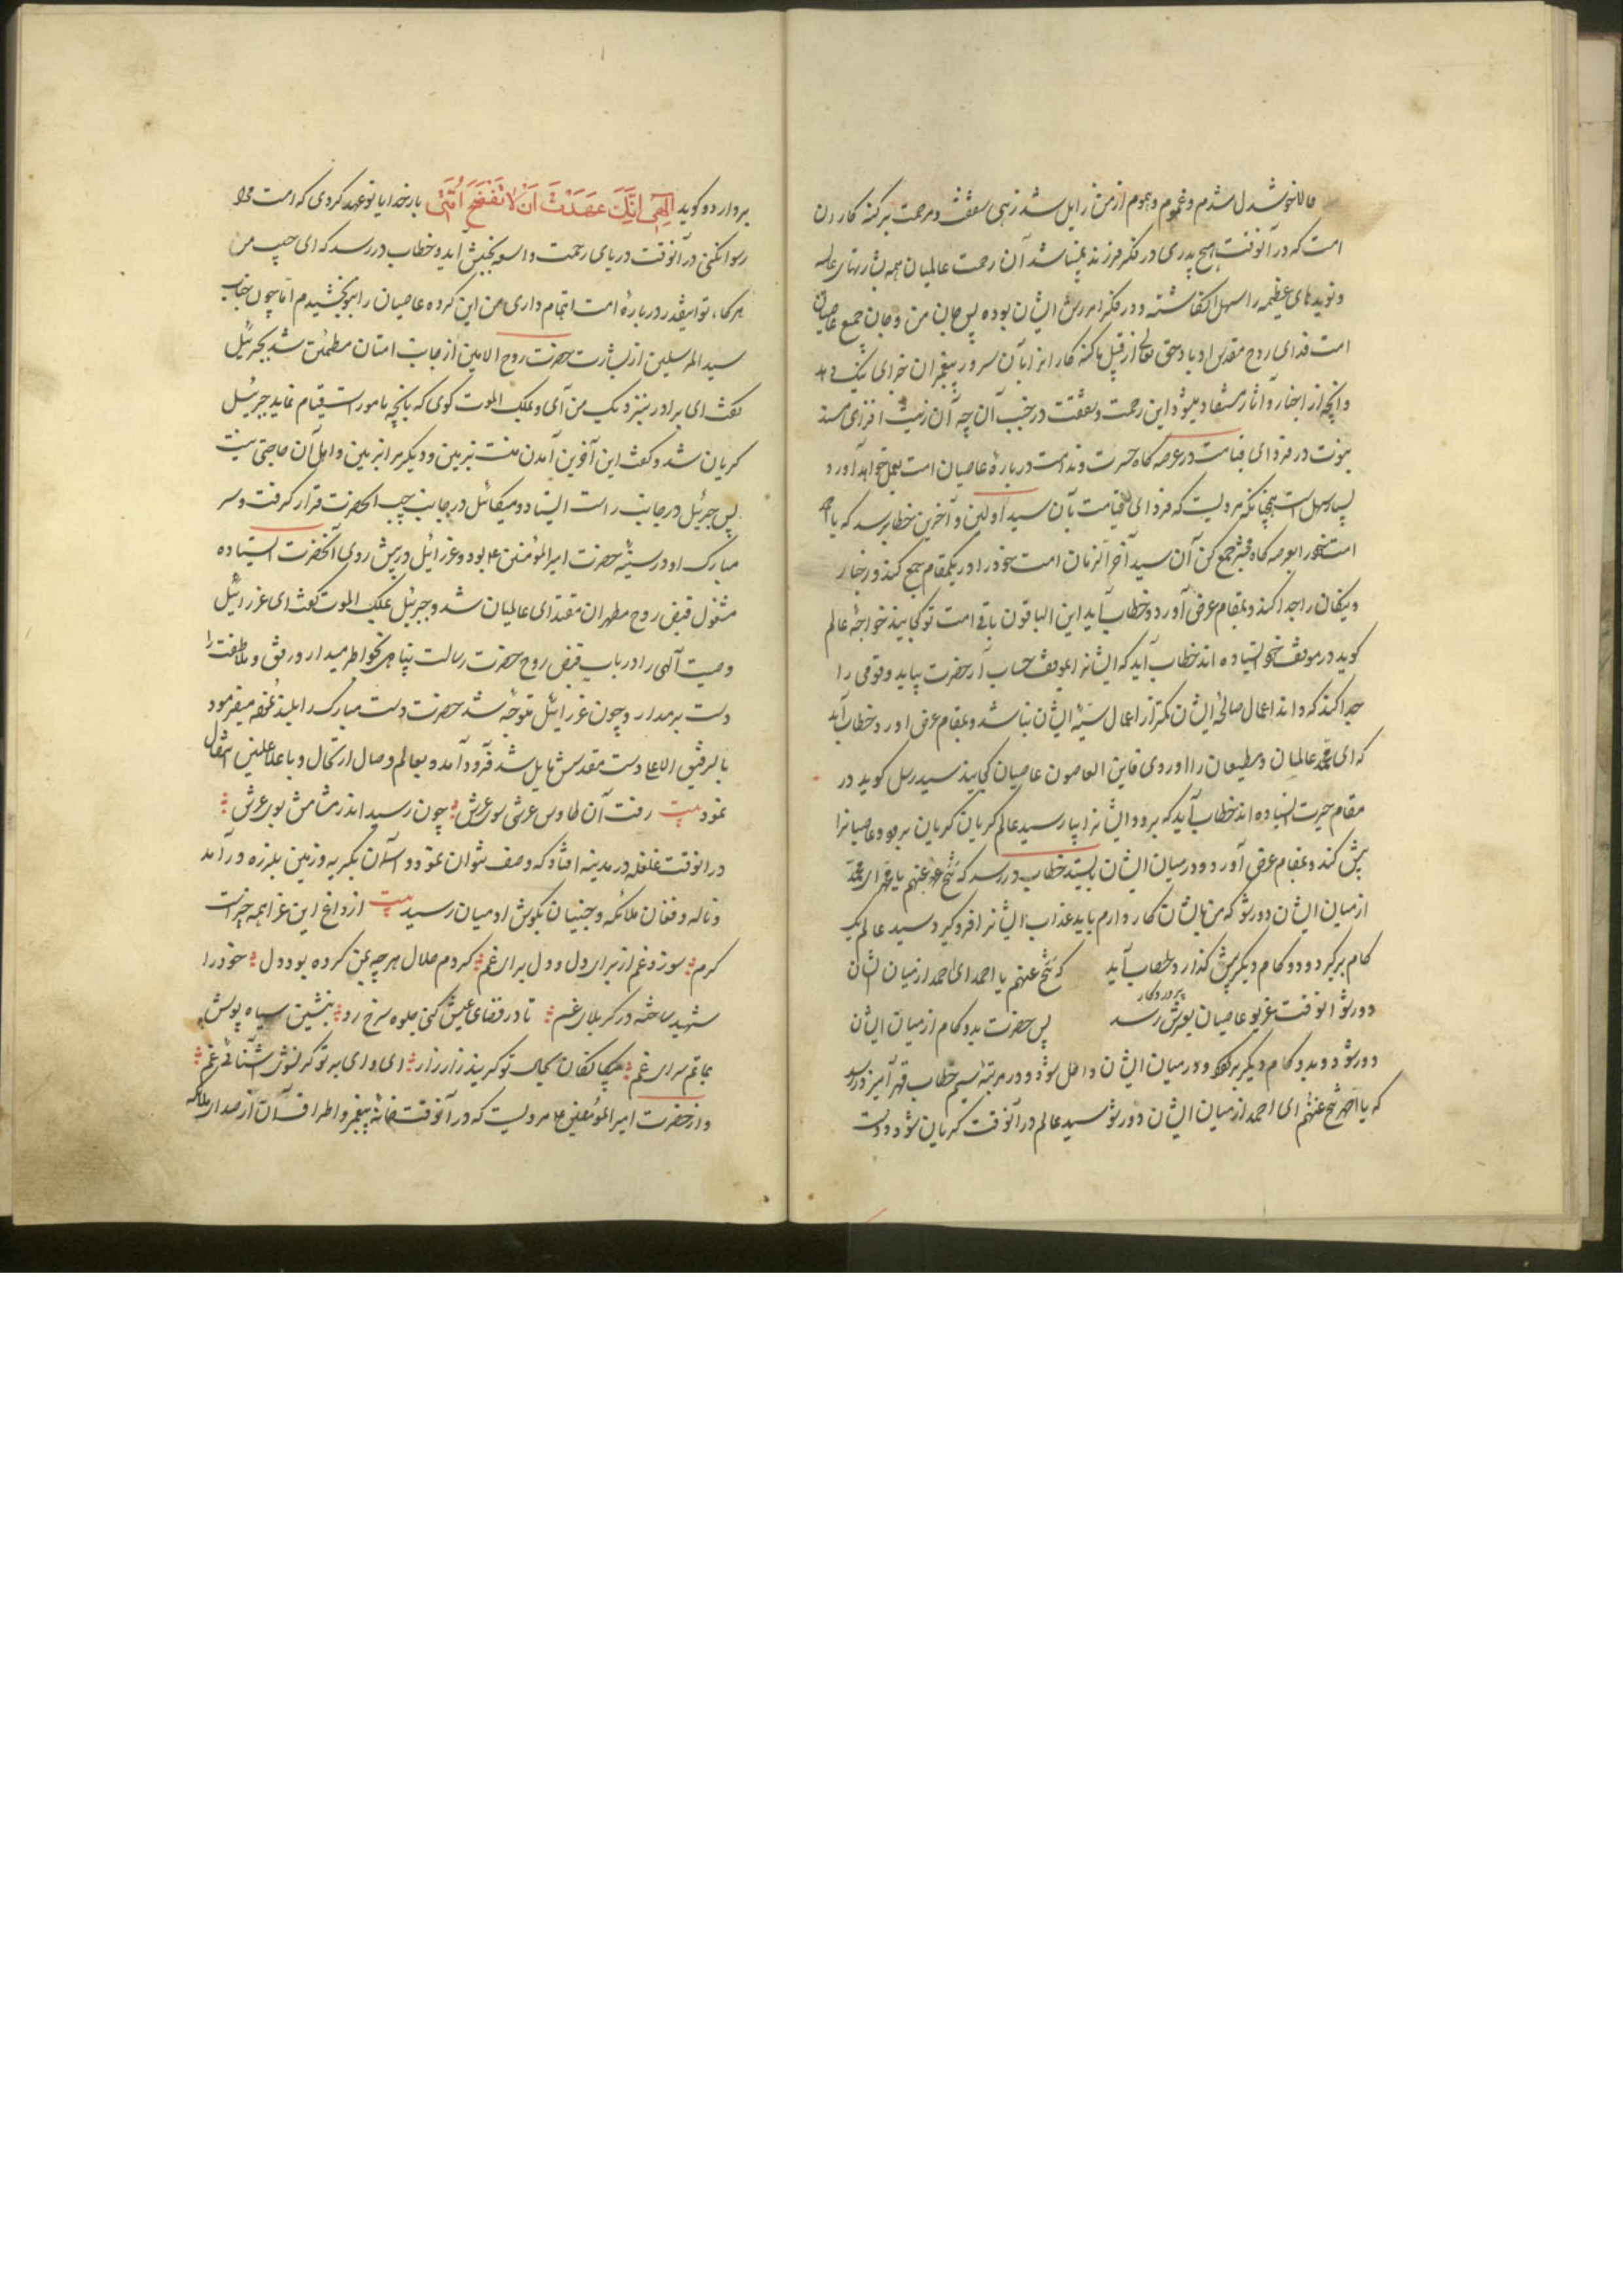 حالا خوشدل شدم و غموم و هموم از من زایل شد زهی شفقت و مرحمت بر گنه کاران
امت که در آنوقت هیچ پدری در فکر فرزند نباشد آن رحمت عالمیان همه بشارتهای
و نویدهای عظیمه را سهل انگاشته و در فکر امرزش ایشان بوده پس جان من و جان جمیع عاصیان
امت فدای روح مقدس او باد حق تعالی از قبل ما گنه کاران بآن سرور پیغمبران جزای نیک دهد
و آنچه از اخبار و آثار مستفاد میشود این رحمت و شفقت در جنب آن چه آن زینت افزای مسند
نبوت در فردای قیامت در عرصه گاه حسرت و ندامت در بارهٔ عاصیان امت بعمل خواهد آورد
بسیار سهل است همچنانکه مرویست که فردای قیامت بآن سید اولین و آخرین خطاب رسد که یا محمد
امت خود را بعرصه گاه محشر جمع کن آن سید آخر الزمان امت خود را در یکمقام جمع کند و زهار
و نیکان را جدا کند و بمقام عرض آورد و خطاب آید این الباقون باقی امت تو کجایند خواجهٔ عالم
گوید در موقف خود ایستاده اند خطاب آید که ایشانرا بموقف حساب آر حضرت بیاید و قومی را
جدا کند که داند اعمال صالحهٔ ایشان کمتر از اعمال سیئهٔ ایشان نباشد و بمقام عرض آورد و خطاب آید
که ای محمد عالمان و مطیعان را آوردی فاین العاصون عاصیان کجایند سید رسل گوید در
مقام حیرت ایستاده اند خطاب آید که برو و ایشانرا بیار سید عالم گریان گریان برود و عاصیانرا
پیش کند و بمقام عرض آورد و در میان ایشان بایستد خطاب در رسد که تنح عنهم یا محمد ای محمد
از میان ایشان دور شو که من با ایشان کار دارم باید عذاب ایشانرا فرو گیرد سید عالم یک
گام برگیرد و دو گام دیگر پیش گذارد خطاب آید که تنح عنهم یا احمد ای احمد از میان ایشان
دور شو انوقت غریو عاصیان بعرش پروردگار رسد پس حضرت بدو گام از میان ایشان
دور شود و بدو گام دیگر برگردد و در میان ایشان داخل شود و در مرتبهٔ سیم خطاب قهر آمیز در رسد
که یا احمد تنح عنهم ای احمد از میان ایشان دور شو سید عالم در آنوقت گریان شود و دست
بردارد و گوید الهی انک عهدت ان لا تفضح امتی بار خدایا تو عهد کردی که امت مرا
رسوا نکنی در آنوقت دریای رحمت واسعه بجنبش آید و خطاب در رسد که ای حبیب من
هرگاه تو اینقدر در بارهٔ امت اهتمام داری من این گروه عاصیان را بتو بخشیدم اما چون جناب
سید المرسلین از بشارت حضرت روح الامین از جانب امتان مطمئن شد بجبرئیل
گفت ای برادر نیز نزدیک من آی و ملک الموت گوی که بآنچه مامور است قیام نماید جبرئیل
گریان شد و گفت این آخرین آمدن منست بزمین و دیگر مرا بزمین و اهل آن حاجتی نیست
پس جبرئیل در جانب راست ایستاد و میکائیل در جانب چپ انحضرت قرار گرفت و سر
مبارک او در سینهٔ حضرت امیر المومنین ع بود و عزرائیل در پیش روی آنحضرت ایستاده
مشغول قبض روح مطهر ان مقتدای عالمیان شد و جبرئیل بملک الموت گفت ای عزرائیل
وصیت آلهی را در باب قبض روح حضرت رسالت پناهی بخاطر میدار و رفق و ملاطفت را
دست برمدار و چون عزرائیل متوجه شد حضرت دست مبارک را بلند نموده میفرمود
بالرفیق الاعلا دست مقدسش مایل شد فرود آمد و بعالم وصال ارتحال و با علا علیین انتقال
نمود بیت رفت آن طاوس عرشی سوی عرش چون رسید اندر مشامش بوی عرش
درانوقت غلغله در مدینه افتاد که وصف نتوان نمود و آسمان بگریه و زمین بلرزه در آمد
و ناله و فغان ملائکه و جنیان بگوش ادمیان رسید بیت از داغ این عزا همه چیز است
کرم سوز و غم از برای دل و دل برای غم کردم حلال هر چه بمن کرده بود دل خود را
شهید ساخته در کربلای غم تا در قفای عیش کنی جلوه سرخ رو بنشین سیاه پوش
بماتم سرای غم بحال تو گریند زار زار ای وای بر تو گر نشوی آشنای غم
و از حضرت امیر المومنین ع مرویست که در آنوقت خانهٔ پیغمبر و اطراف آن از صدای ملائکه